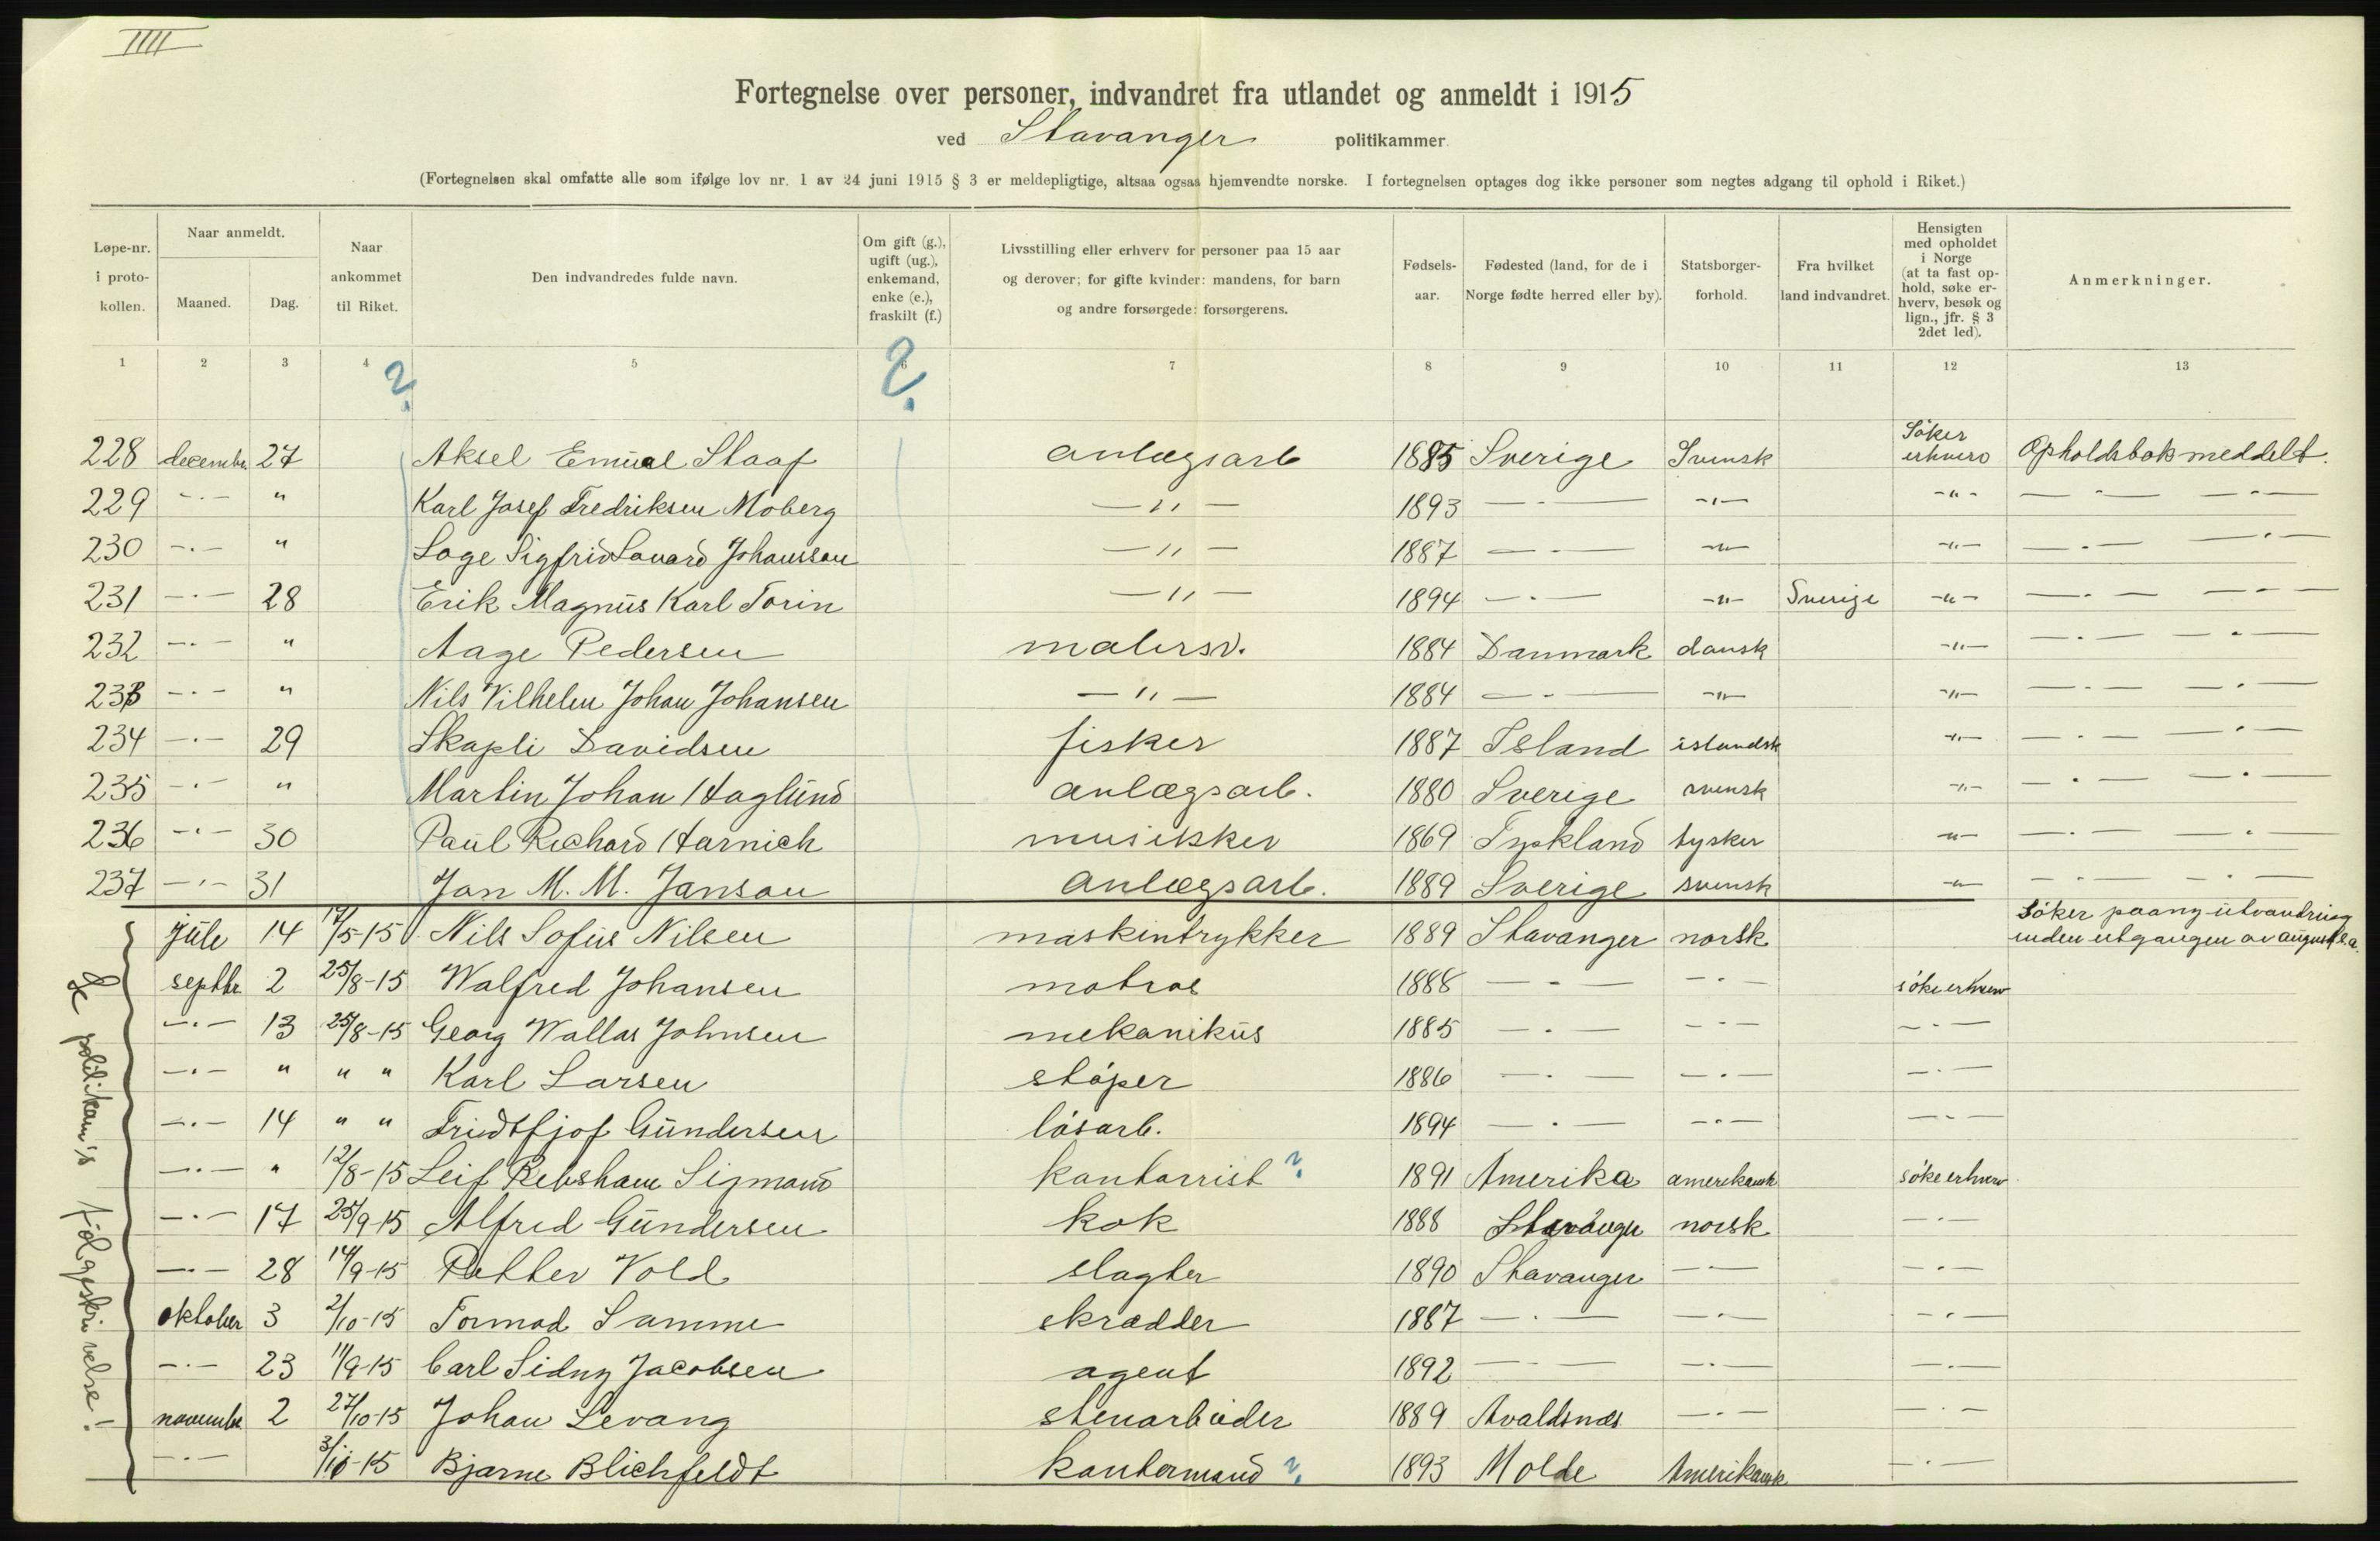 IIII
Fortegnelse over personer, indvandret fra utlandet og anmeldt i 1915
ved Stavanger politikammer
(Fortegnelsen skal omfatte alle som ifølge lov nr. 1 av 24 juni 1915 § 3 er meldepligtige, altsaa ogsaa hjemvendte norske. I fortegnelsen optages dog ikke personer som negtes adgang til ophold i Riket.)
Løpe-nr. i proto- kollen.
Naar anmeldt.
Maaned. Dag.
Naar ankommet til Riket.
Den indvandredes fulde navn.
Om gift (g.), ugift (ug.), enkemand, enke (e.), fraskilt (f.)
Livsstilling eller erhverv for personer paa 15 aar og derover; for gifte kvinder: mandens, for barn og andre forsørgede: forsørgerens.
Fødsels- aar.
Fødested (land, for de i Norge fødte herred eller by).
Statsborger- forhold.
Fra hvilket land indvandret.
Hensigten med opholdet i Norge (at ta fast op- hold, søke er- hverv, besøk og lign., jfr. § 3 2det led).
Anmerkninger.
1 2 3 4 5 7 8 9 10 11 12 13
? ?
228 decembr. 27 Aksel Emual Staaf anlægsarb 1885 Sverige Svensk Søker erhverv Opholdsbok meddelt.
229 -·- " Karl Josef Fredriksen Moberg -"- 1893 -·- -"- -"- -·- -·-
230 -·- " Loge Sigfrid Lavard Johansson -"- 1887 -·- -"- -"- -·- -·-
231 -·- 28 Erik Magnus Karl Torin -"- 1894 -·- -"- Sverige -"- -·- -·-
232 -·- " Aage Pedersen malersv. 1884 Danmark dansk -"- -·- -·-
233 -·- " Nils Vilhelm Johan Johansen -"- 1884 -·- -"- -"- -·- -·-
234 -·- 29 Skapli Davidsen fisker 1887 Island islandsk -"- -·- -·-
235 -·- " Martin Johan Haglund anlægsarb. 1880 Sverige svensk -"- -·- -·-
236 -·- 30 Paul Richard Harnich musikker 1869 Tyskland tysker -"- -·- -·-
237 -·- 31 Jan M. M. Janson anlægsarb. 1889 Sverige svensk -"- -·- -·-
juli 14 17/5-15 Nils Sofus Nilsen maskintrykker 1889 Stavanger norsk Søker paany utvandring inden utgangen av august d.a.
septbr. 2 25/8-15 Walfred Johansen matros 1888 -·- -·- søke erhverv
-·- 13 25/8-15 Georg Wallas Johnsen mekanikus 1885 -·- -·- -·-
-·- " " " Karl Larsen støper 1886 -·- -·- -·-
-·- 14 " " Fridtfjof Gundersen løsarb. 1894 -·- -·- -·-
-·- " 12/8-15 Leif Sigmand kontorrist ? 1891 Amerika amerikansk søke erhverv
-·- 17 25/9-15 Alfred Gundersen kok 1888 Stavanger norsk -·-
-·- 28 14/9-15 Petter Vold slagter 1890 Stavanger -·- -·-
oktober 3 2/10-15 Tormod Samme skrædder 1887 -·- -·- -·-
-·- 23 11/9-15 Carl Sidny Jacobsen agent 1892 -·- -·- -·-
novembr. 2 27/10-15 Johan Levang stenarbeider 1889 Avaldsnes -·- -·-
-·- 3/10-15 Bjarne Blichfeldt kontormand ? 1893 Molde Amerikansk -·-
Se politikam's følgeskrivelse!